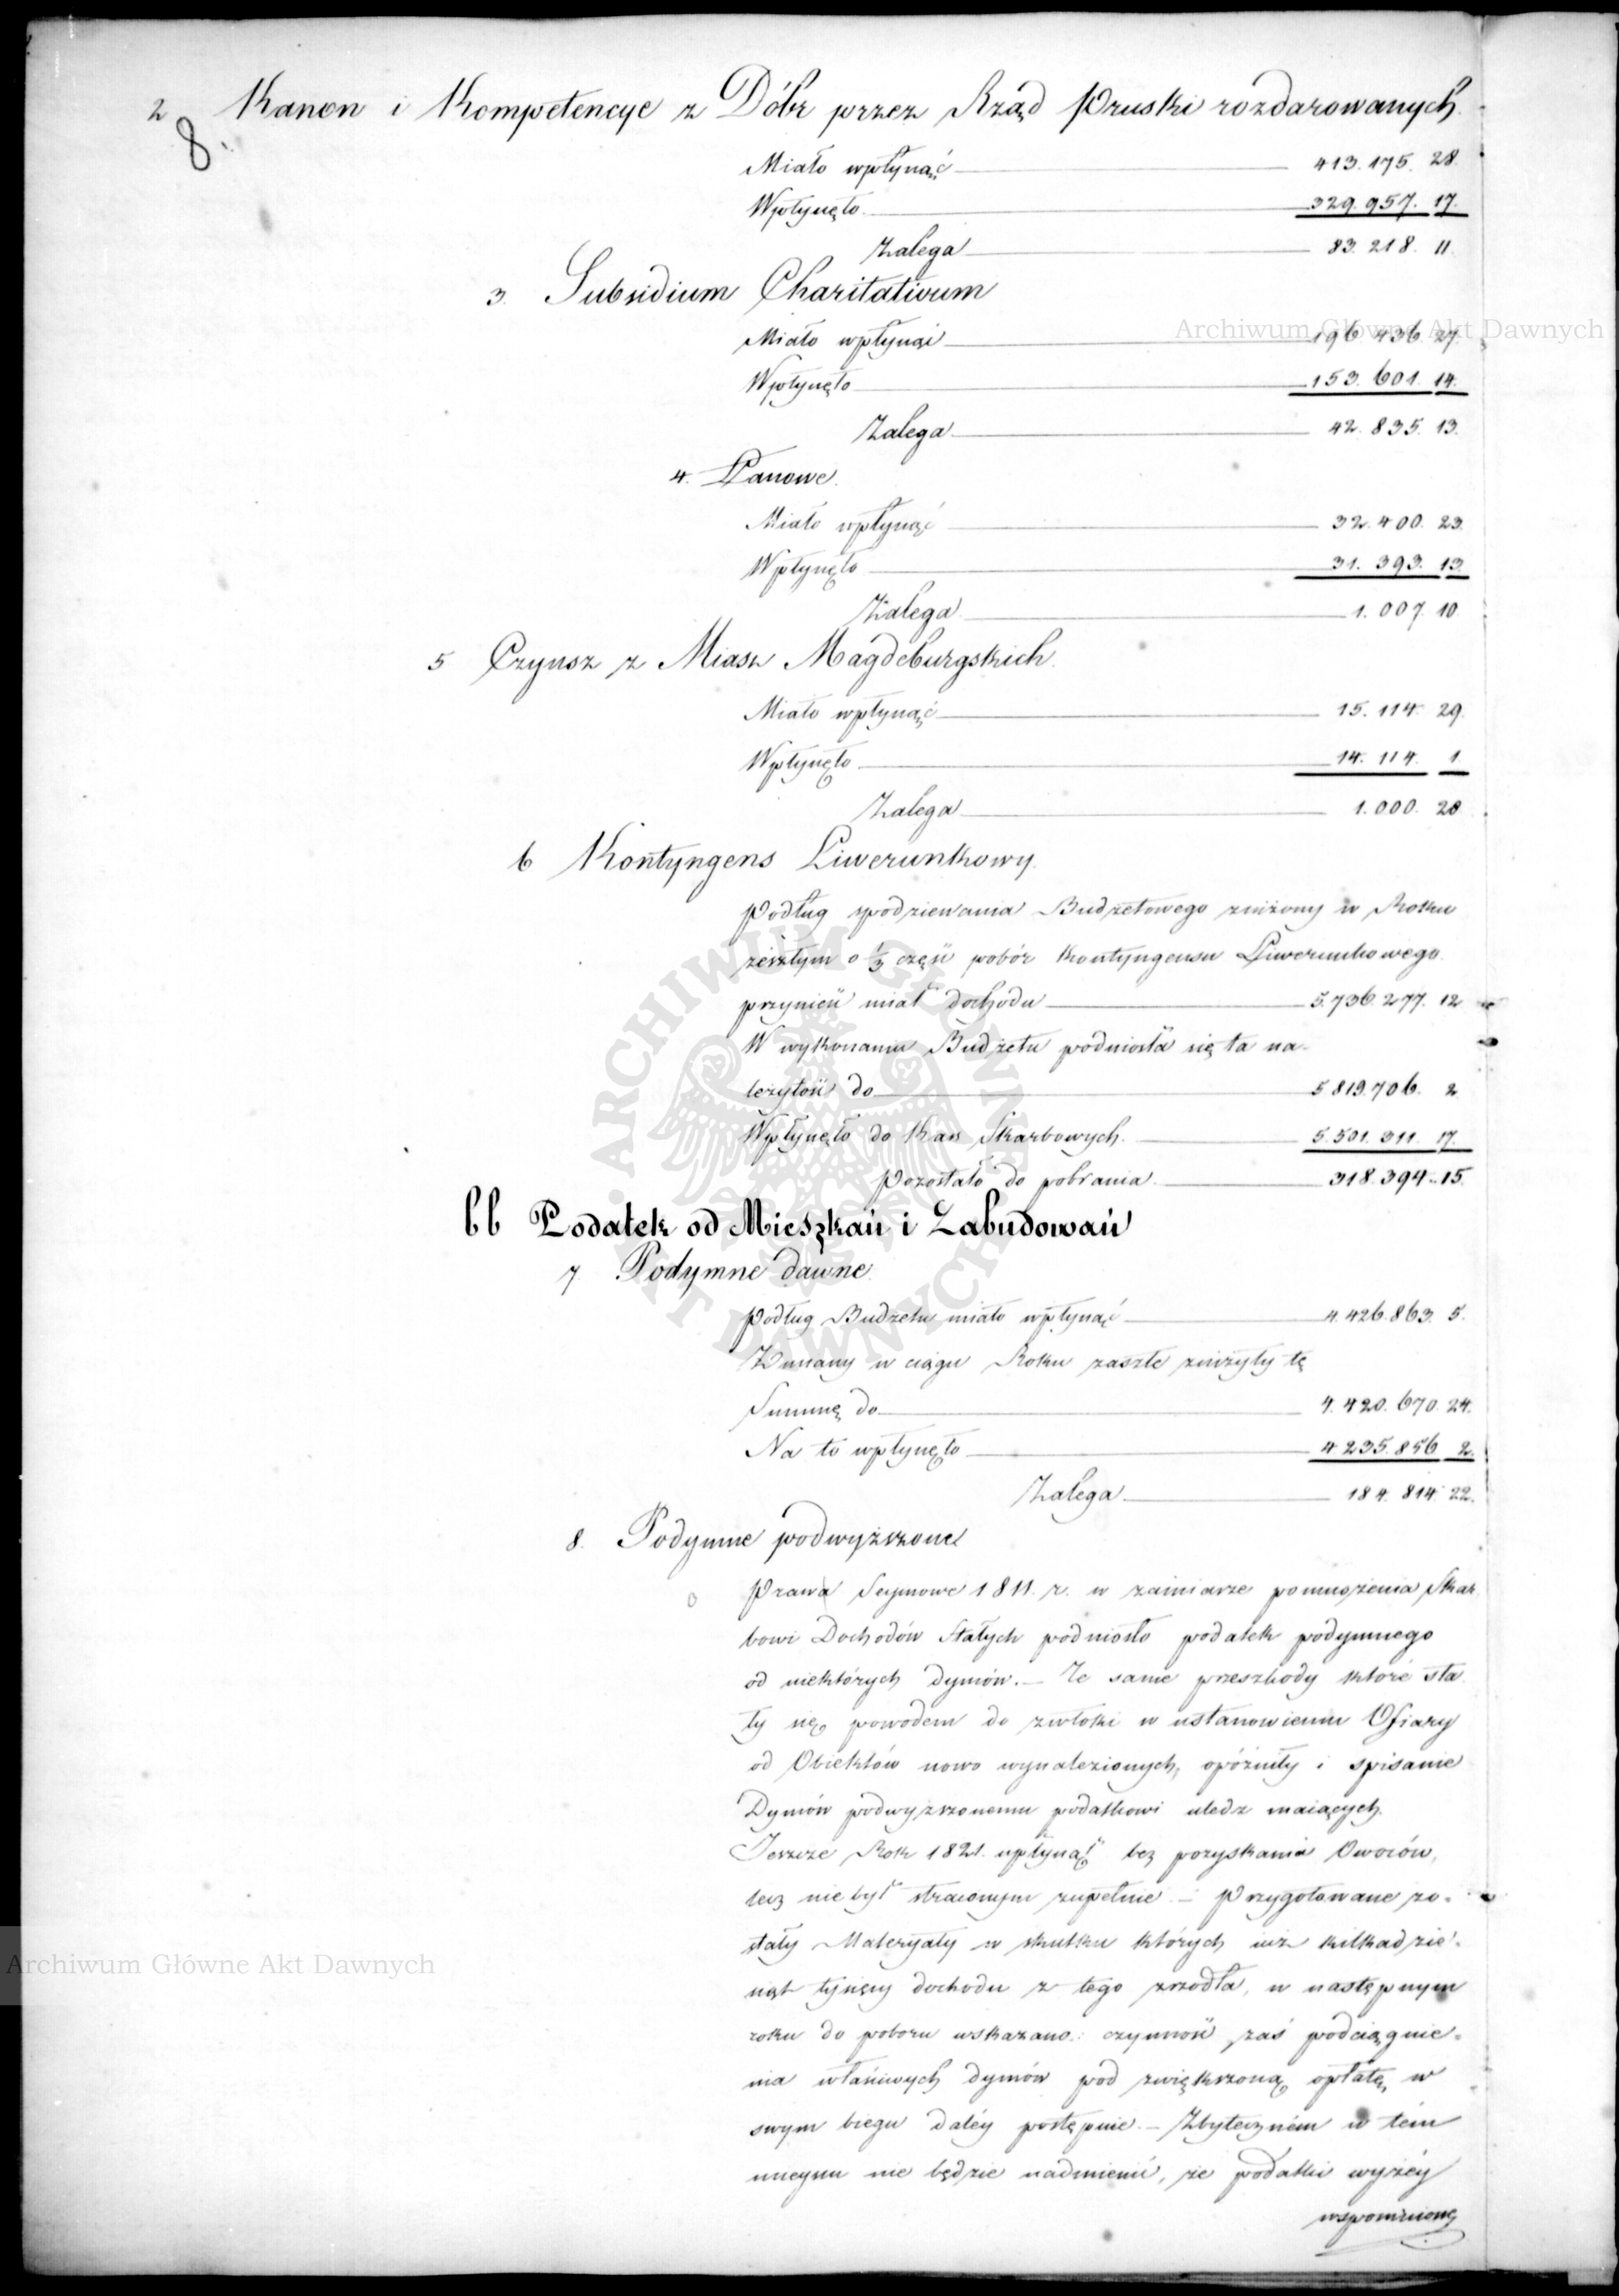 2 Kanon i Kompetencye z Dóbr przez Rząd Pruski rozdarowanych.
8.
Miało wpłynąć 413.175. 28.
Wpłynęło 329.957. 17.
Zalega 83.218. 11.
3. Subsidium Charitativum
Archiwum Główne Akt Dawnych
Miało wpłynąć 196.436. 27.
Wpłynęło 153.601. 14.
Zalega 42.835. 13.
4. Łanowe.
Miało wpłynąć 32.400. 23.
Wpłynęło 31.393. 13.
Zalega 1.007. 10
5 Czynsz z Miast Magdeburgskich.
Miało wpłynąć 15.114. 29.
Wpłynęło 14.114. 1.
Zalega 1.000. 28
6 Kontyngens Liwerunkowy.
Podług spodziewania Budżetowego zniżony w Roku
zeszłym o 1/3 część pobór Kontyngensu Liwerunkowego
przynieść miał dochodu 5.736.277. 12
W wykonaniu Budżetu podniosła się ta na-
leżytość do 5.819.706. 2
Wpłynęło do Kass Skarbowych. 5.501.311. 17.
Pozostało do pobrania. 318.394. 15.
bb Podatek od Mieszkań i Zabudowań
7. Podymne dawne.
Podług Budżetu miało wpłynąć 4.426.863. 5.
Zmiany w ciągu Roku zaszłe zniżyły tę
Summę do 4.420.670. 24.
Na to wpłynęło 4.235.856 2.
Zalega 184.814. 22.
8. Podymne podwyższone
Prawa Seymowe 1811. r. w zamiarze pomnożenia Skar
bowi Dochodów Stałych podniosło podatek podymnego
od niektórych dymów. – Te same przeszkody które sta
ły się powodem do zwłoki w ustanowieniu Ofiary
od Obiektów nowo wynalezionych, opóźniły i spisanie
Dymów podwyższonemu podatkowi uledz maiących.
Jeszcze Rok 1821. upłynął bez pozyskania Owoców,
lecz nie był straconym zupełnie. – Przygotowane zo-
stały Materyały w skutku których iuż kilkadzie-
siąt tysięcy dochodu z tego zrzodła, w następnym
Archiwum Główne Akt Dawnych
roku do poboru wskazano: czynność zaś podciągnie-
nia właściwych dymów pod zwiększoną opłatę, w
swym biegu daléy postępuie. – Zbyteczném w tém
mieyscu nie będzie nadmienić, że podatki wyżéy
wspomnione
ARCHIWUM GŁÓWNE AKT DAWNYCH